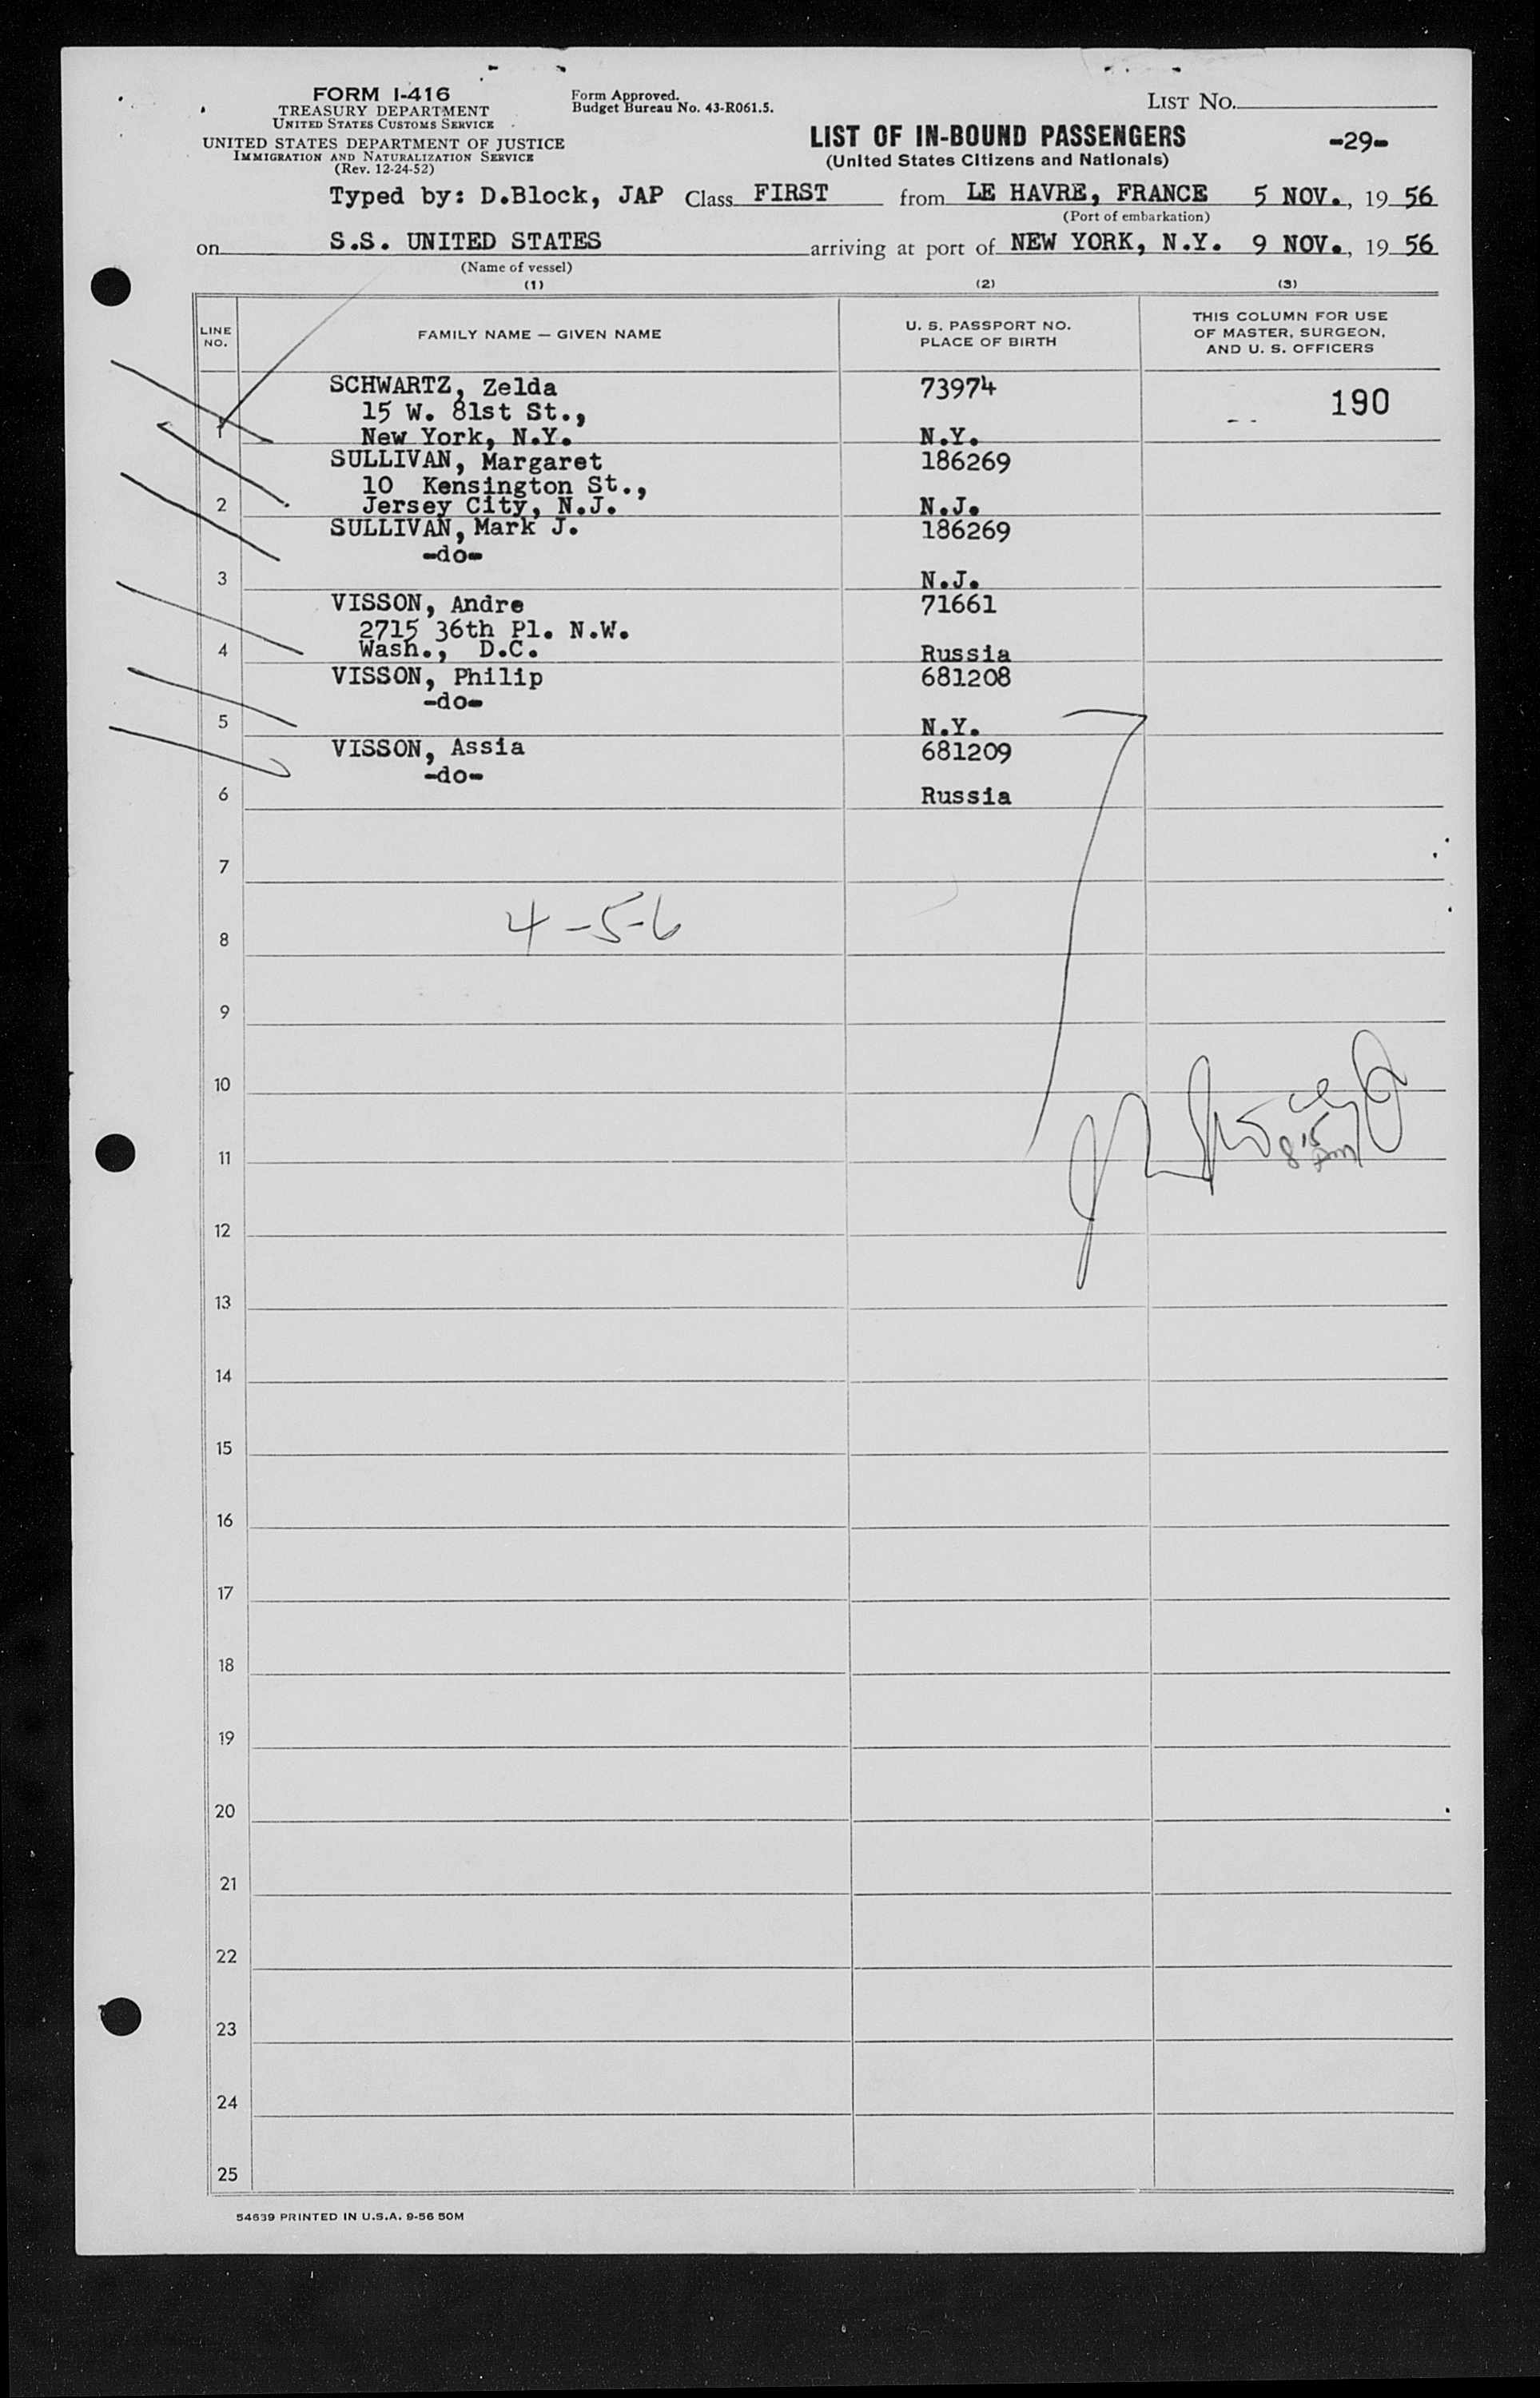 FORM I-416
TREASURY DEPARTMENT
UNITED STATES CUSTOMS SERVICE
UNITED STATES DEPARTMENT OF JUSTICE
IMMIGRATION AND NATURALIZATION SERVICE
(Rev. 12-24-52)
Form Approved.
Budget Bureau No. 43-R061.5.
LIST NO.
LIST OF IN-BOUND PASSENGERS
(United States Citizens and Nationals)
-29-
Typed by: D.Block, JAP Class FIRST from LE HAVRE, FRANCE 5 NOV., 19 56
(Port of embarkation)
on S.S. UNITED STATES arriving at port of NEW YORK, N.Y. 9 NOV., 19 56
(Name of vessel)
(1) (2) (3)
LINE NO.
FAMILY NAME — GIVEN NAME
U. S. PASSPORT NO.
PLACE OF BIRTH
THIS COLUMN FOR USE
OF MASTER, SURGEON,
AND U. S. OFFICERS
SCHWARTZ, Zelda 73974 190
15 W. 81st St.,
1 New York, N.Y. N.Y.
SULLIVAN, Margaret 186269
10 Kensington St.,
2 Jersey City, N.J. N.J.
SULLIVAN, Mark J. 186269
-do-
3 N.J.
VISSON, Andre 71661
2715 36th Pl. N.W.
4 Wash., D.C. Russia
VISSON, Philip 681208
-do-
5 N.Y.
VISSON, Assia 681209
-do-
6 Russia
7
4-5-6
8
9
10
11
12
13
14
15
16
17
18
19
20
21
22
23
24
25
54639 PRINTED IN U.S.A. 9-56 50M